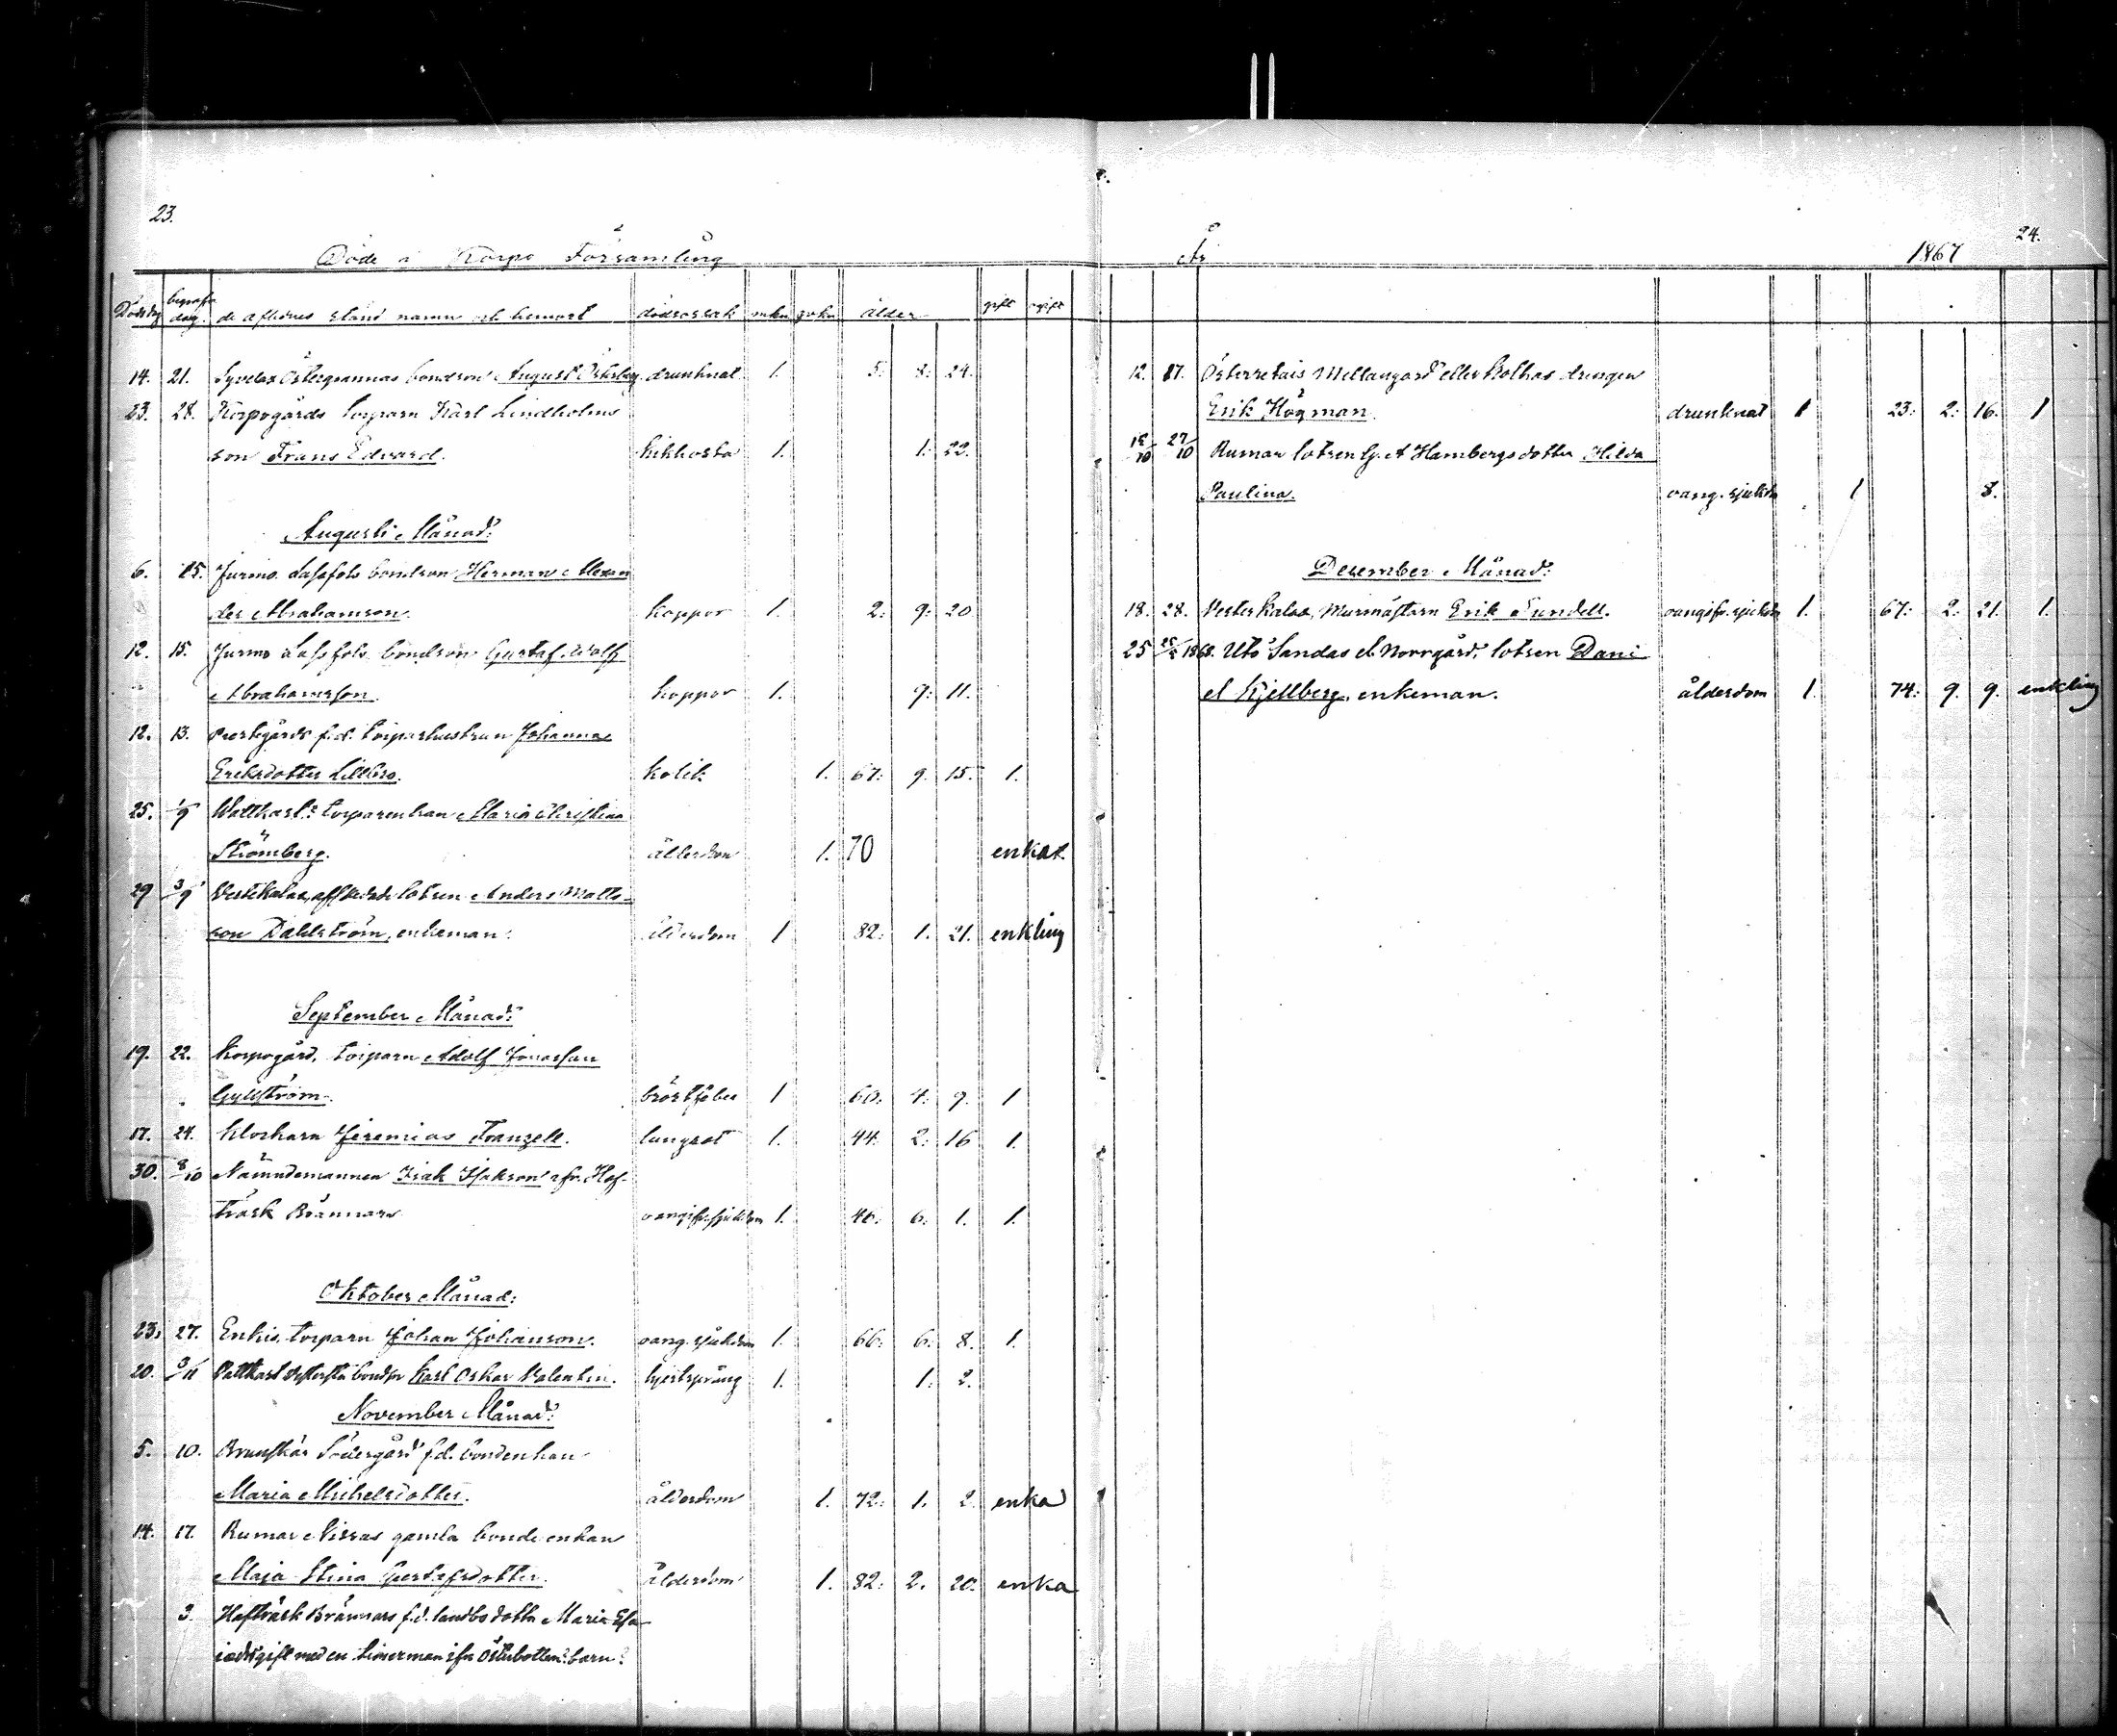 23.
Döde i Korpo Församling
Dödsdag begrafn. dag. de aflidnes stånd namn och hemort dödsorsak mkn qvkn ålder gift ogift
14. 21. Österg​rannas bondson August drunknat 1. 5. 8. 24.
23. 28. Korpogårds torparn Karl Lindholms
son Frans Edvard. kikhosta 1. 1. 22.
Augusti Månad:
6. 15. Jurmo bondson Herman Alexan
der Abrahamson. koppor 1. 2: 9: 20
12. 15. Jurmo bondson Gustaf Adolf
Abrahamsson. koppor 1. 9: 11.
12. 13. Prestgårds f.d. torparhustrun Johanna
Eriksdotter kolik 1. 67: 9. 15. 1.
25. 1/9 Wattkast: torparenkan Maria Christina
Strömberg. ålderdom 1. 70 enka
29 3/9 Vesterkalax, afskedade lotsen Anders Matts-
son Dahlström, enkeman. ålderdom 1 82: 1. 21. enkling
September Månad:
19. 22. Korpogård, torparn Adolf Jonasson
Gyllström. bröstfeber 1 60: 4: 9. 1
17. 24. Klockarn Jeremias Franzell. lungsot 1. 44: 2: 16 1.
30. 8/10 Nämndemannen Isak Isakson ifr. Haf-
träsk Brännars oangifv. sjukdom 1. 46: 6: 1. 1.
Oktober Månad:
23. 27. Enkis torparn Johan Johanson. oang. sjukdom 1. 66: 6: 8. 1.
20. 3/11 Vattkast bondsn Karl Oskar Valentin. hjertsprång 1. 1. 2.
November Månad:
5. 10. Brunskär Södergård f.d. bondenkan
Maria Michelsdotter. ålderdom 1. 72: 1. 2. enka
14. 17. Rumar Nissas gamla bonde enkan
Maja Stina Gustafsdotter. ålderdom 1. 82: 2. 20. enka
3. Hafträsk Brännars f.d. landbo dottr Maria
gift med en timerman ifrn Österbotten: barn:
År 1867 24.
12. 17. Österretais Mellangård eller Kolkas drengen
Erik Högman. drunknat 1 23: 2: 16. 1
27/10 Rumar lotsen G. A Hambergs dotter Hilda
Paulina. oang. sjukdm 1 8.
December Månad:
18. 28. Vesterkalax, Murmästarn Erik Sundell. oangifv. sjukdm 1. 67: 2: 21. 1.
25 1868. Utö Sandas el. Norrgård, lotsen Dani
el Kjellberg, enkeman. ålderdom 1. 74: 9. 9. enkling